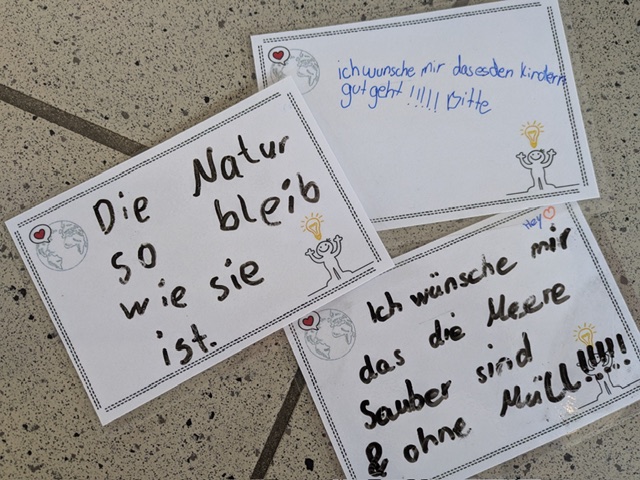 ich wünsche mir das es den kindern
gut geht !!!!! Bitte
Die Natur
so bleib
wie sie
ist.
Hey
Ich wünsche mir
das die Meere
Sauber sind
& ohne Müll!!!!!